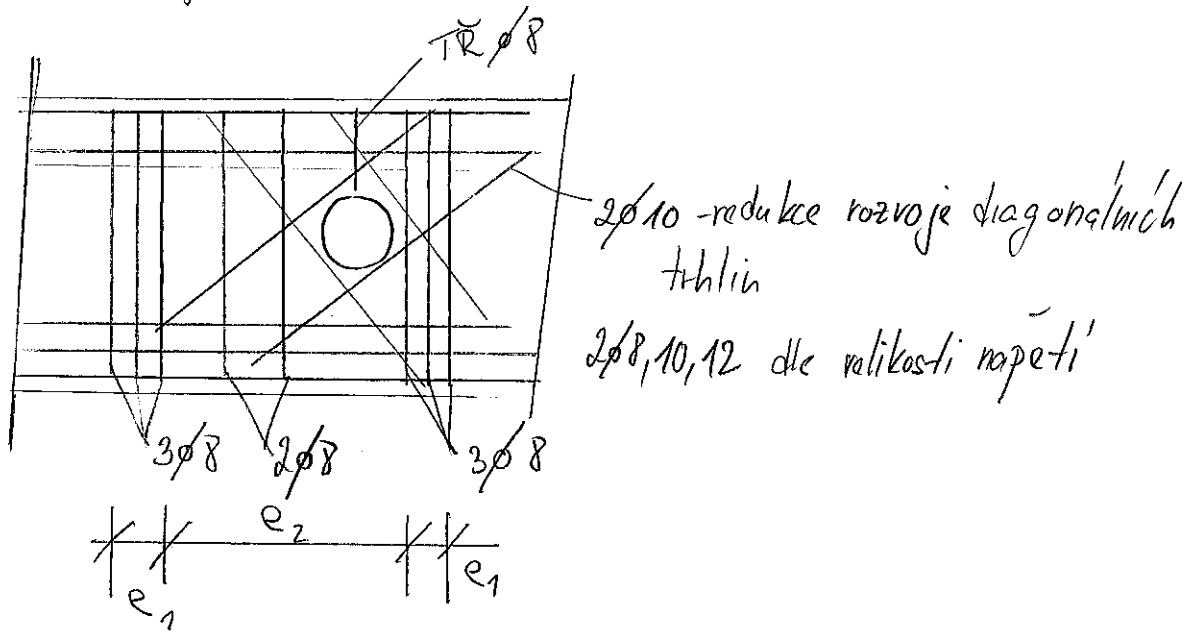 TŘ ϕ8
2ϕ10 - redukce rozvoje diagonálních
trhlin
2ϕ8,10,12 dle velikosti napětí
3ϕ8 2ϕ8 3ϕ8
e₂
e₁ e₁